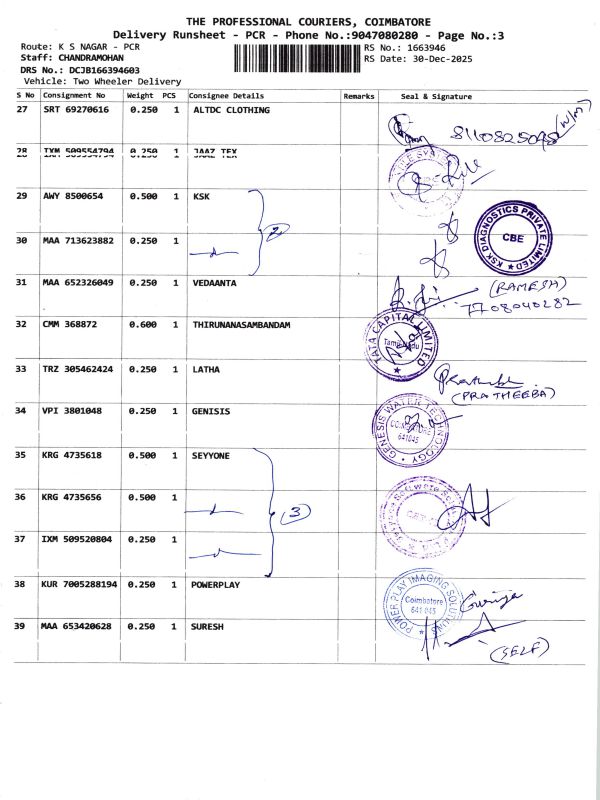 THE PROFESSIONAL COURIERS, COIMBATORE
Delivery Runsheet - PCR - Phone No.:9047080280 - Page No.:3
Route: K S NAGAR - PCR RS No.: 1663946
Staff: CHANDRAMOHAN RS Date: 30-Dec-2025
DRS No.: DCJB166394603
Vehicle: Two Wheeler Delivery
S No Consignment No Weight PCS Consignee Details Remarks Seal & Signature
27 SRT 69270616 0.250 1 ALTDC CLOTHING
8110825095 (W/M)
28 IXM 509554794 0.250 1 JAAZ TEX
29 AWY 8500654 0.500 1 KSK
2
KSK DIAGNOSTICS PRIVATE LIMITED CBE
30 MAA 713623882 0.250 1
31 MAA 652326049 0.250 1 VEDAANTA (RAMESH)
7708040282
32 CMM 368872 0.600 1 THIRUNANASAMBANDAM
TATA CAPITAL LIMITED Tamil Nadu
33 TRZ 305462424 0.250 1 LATHA
(PRATHEEBA)
34 VPI 3801048 0.250 1 GENISIS
GENESIS WATER TECHNOLOGY COIMBATORE 641045
35 KRG 4735618 0.500 1 SEYYONE
36 KRG 4735656 0.500 1
3
37 IXM 509520804 0.250 1
38 KUR 7005288194 0.250 1 POWERPLAY
POWER PLAY IMAGING SOLUTIONS Coimbatore 641 045
Girija
39 MAA 653420628 0.250 1 SURESH
(SELF)